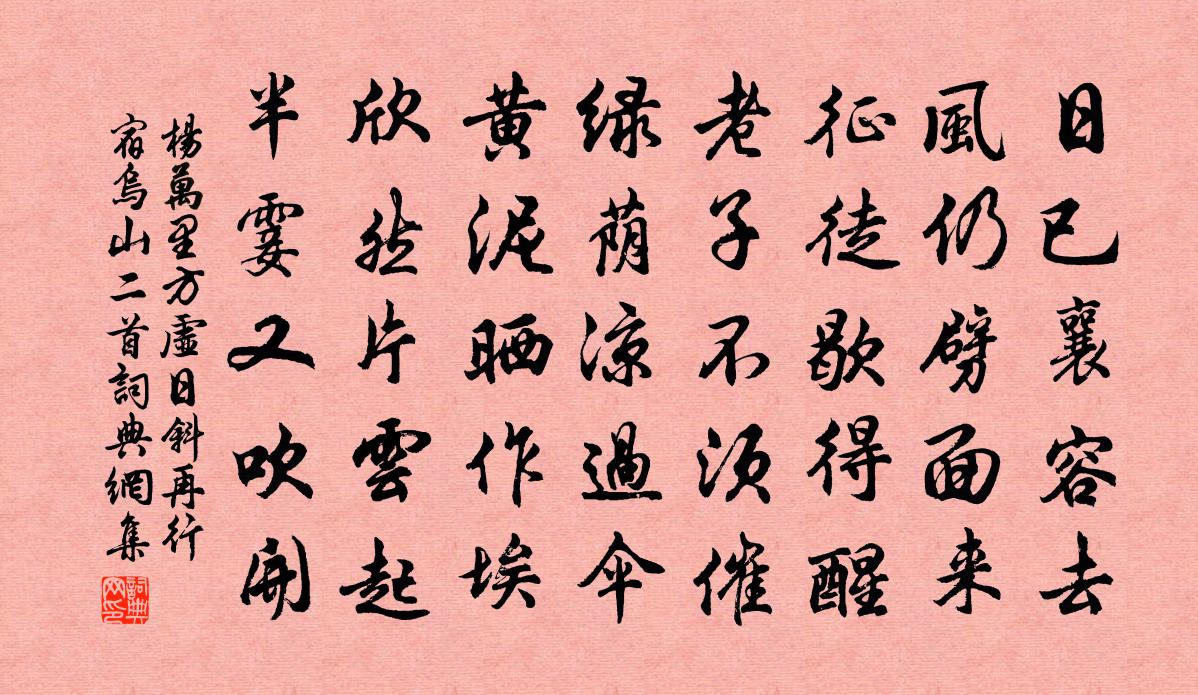 日已襄容去
風仍劈面来
征徒歇得醒
老子不須催
绿荫凉過伞
黄泥晒作埃
欣然片雲起
半霎又吹開
楊萬里方虛日斜再行
宿烏山二首詞典網集
詞典
网印